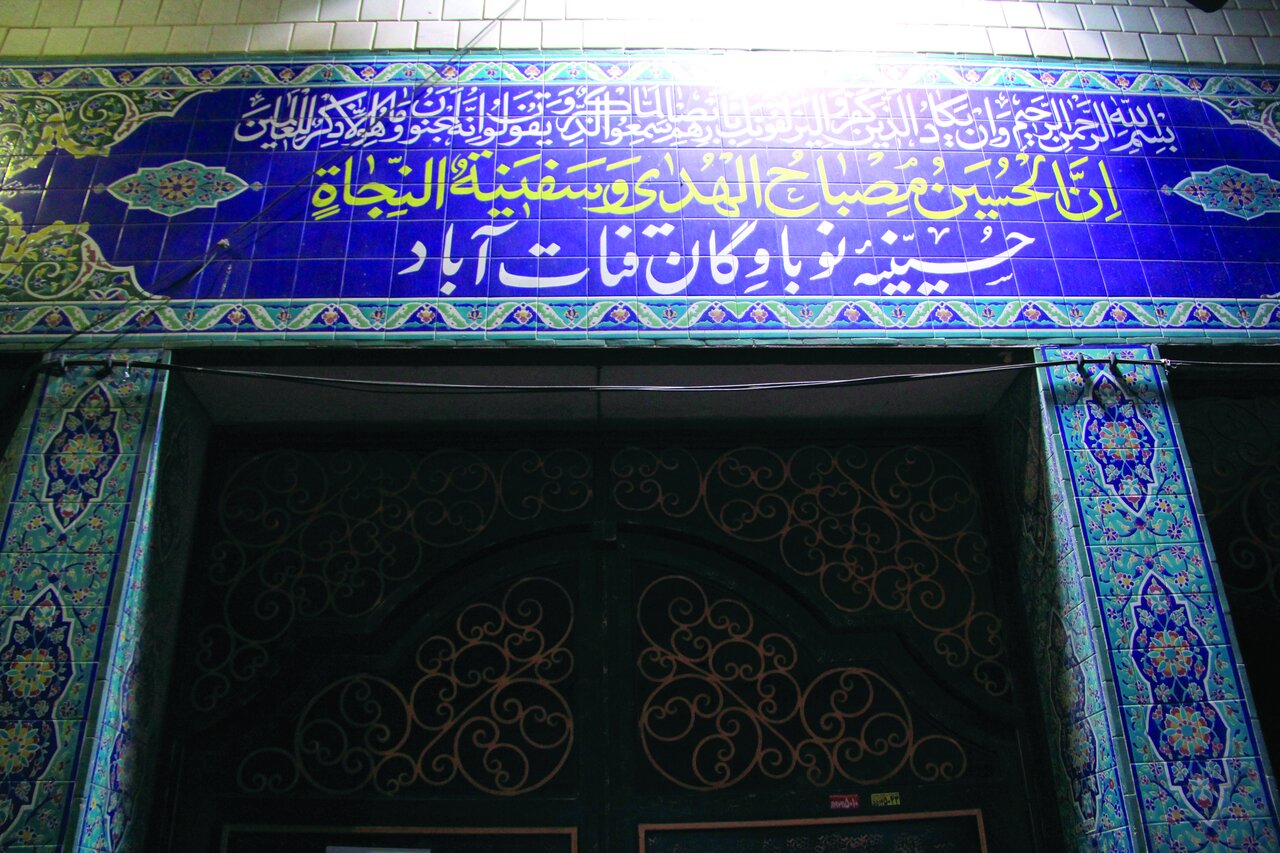 بِسْمِ اللهِ الرَّحْمنِ الرَّحیمِ وَاِنْ یَکادُ الَّذینَ کَفَرُوا لَیُزْلِقُونَکَ بِاَبْصارِهِمْ لَمّا سَمِعُوا الذِّکْرَ وَ یَقُولُونَ اِنَّهُ لَمَجْنُونٌ وَ ما هُوَ اِلّا ذِکْرٌ لِلْعالَمینَ
اِنَّ الْحُسَیْنَ مِصْباحُ الْهُدیٰ وَ سَفینَةُ النِّجاةِ
حُسِیّنیهٔ نوباوِگان قنات آباد